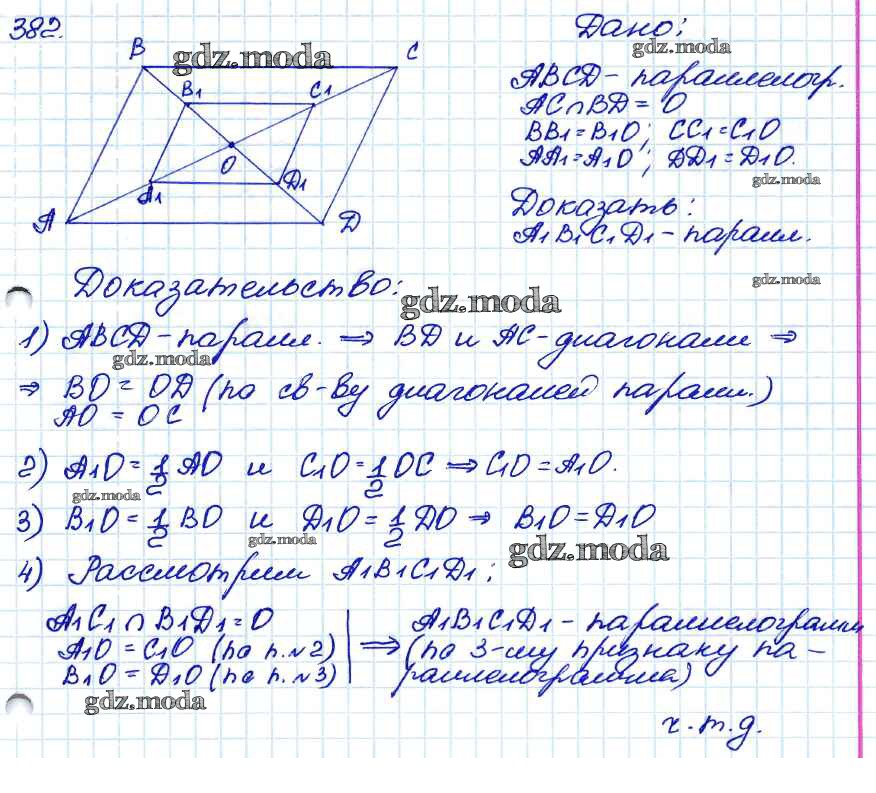 382.
Дано:
gdz.moda
gdz.moda
B
C
B1
C1
O
A1
D1
A
D
ABCD - параллелогр.
AC∩BD = O
BB1 = B1O; CC1 = C1O
AA1 = A1O; DD1 = D1O.
gdz.moda
Доказать:
A1B1C1D1 - паралл.
gdz.moda
Доказательство:
gdz.moda
1) ABCD - паралл. ⇒ BD и AC - диагонали ⇒
gdz.moda
⇒ BO = OD (по св-ву диагоналей паралл.)
AO = OC
2) A1O = 1/2 AO и C1O = 1/2 OC ⇒ C1O = A1O.
gdz.moda
3) B1O = 1/2 BO и D1O = 1/2 DO ⇒ B1O = D1O
gdz.moda
gdz.moda
4) Рассмотрим A1B1C1D1:
A1C1 ∩ B1D1 = O
A1O = C1O (по п.№2)
B1O = D1O (по п.№3)
⇒ A1B1C1D1 - параллелограмм
(по 3-му признаку па-
раллелограмма)
gdz.moda
ч.т.д.